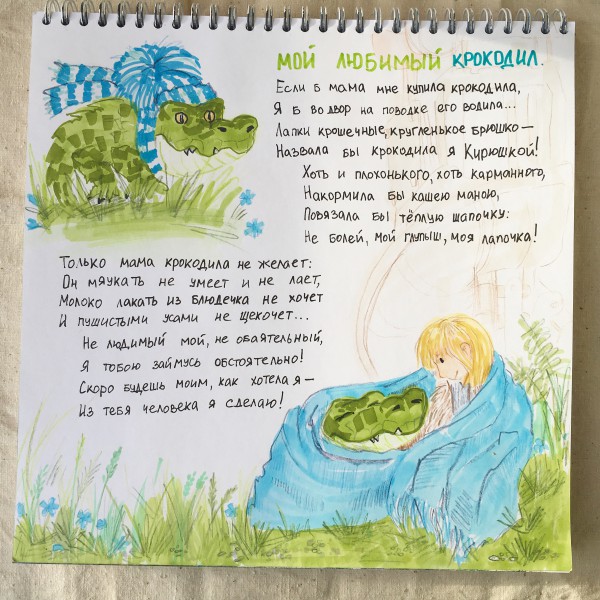 МОЙ ЛЮБИМЫЙ КРОКОДИЛ.
Если б мама мне купила крокодила,
Я б во двор на поводке его водила...
Лапки крошечные, кругленькое брюшко—
Назвала бы крокодила я Кирюшкой!
Хоть и плохонького, хоть карманного,
Накормила бы кашею манною,
Повязала бы тёплую шапочку:
Не болей, мой глупыш, моя лапочка!
Только мама крокодила не желает:
Он мяукать не умеет и не лает,
Молоко лакать из блюдечка не хочет
И пушистыми усами не щекочет...
Не людимый мой, не обаятельный,
Я тобою займусь обстоятельно!
Скоро будешь моим, как хотела я—
Из тебя человека я сделаю!